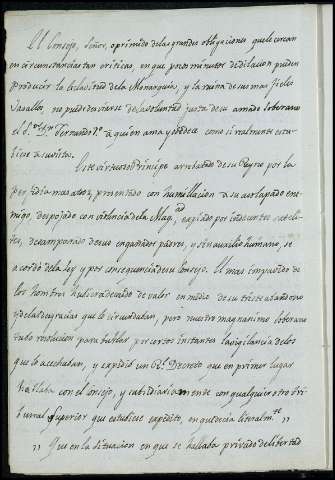 El Consejo, Señor, oprimido de las grandes obligaciones que le cercan
en circunstancias tan criticas, en que pocos minutos de dilacion pueden
producir la esclavitud de la Monarquia, y la ruina de sus mas fieles
Vasallos, no puede desviarse de la voluntad justa de su amado Soberano
el S.or D.n Fernando 7.o a quien ama y obedece como si realmente estu-
viese a su vista.
Este virtuoso Principe arrebatado de su Reyno por la
perfidia mas atroz, presentado con humillacion a su solapado ene-
migo, despojado con violencia de la Mag.ad, espiado por indecentes sateli-
tes, desamparado de sus engañados padres, y sin auxilio humano, se
acordó de la ley y por consequencia de su Consejo. El mas impavido de
los hombres hubiera decaido de valor en medio de su triste abandono
y de las desgracias que lo circundaban, pero nuestro magnanimo Soberano
tubo resolucion para burlar por cortos instantes la vigilancia de los
que lo acechaban, y expidió un R.l Decreto que en primer lugar
hablaba con el consejo, y subsidiariamente con qualquier otro Tri-
bunal Superior que estubiese expedito, en que decia literalm.te „
„ Que en la situacion en que se hallaba privado de libertad